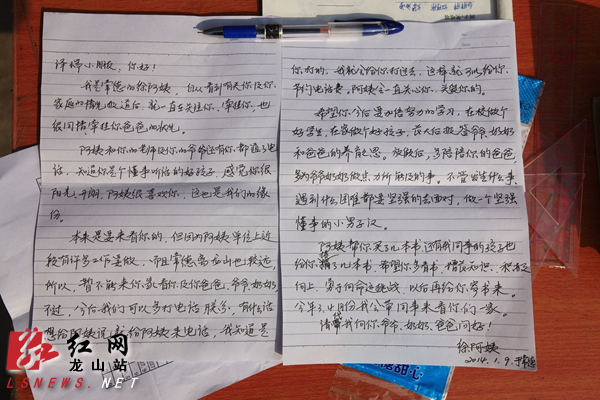 泽楠小朋友，你好！
我是常德的徐阿姨，自从看到有关你及你
家庭的情况报道后，就一直关注你、牵挂你，也
很同情牵挂你爸爸的状况。
阿姨和你的老师及你的爷爷还有你都通过电
话，知道你是个懂事听话的好孩子，感觉你很
阳光、开朗，阿姨很喜欢你，这也是我们的缘
份。
本来是要来看你的，但因为阿姨单位上近
段有许多工作要做，而且常德离龙山也较远，
所以，暂不能来你家看你及你爸爸、爷爷奶奶
不过，今后我们可以多打电话联系，有什么话
想给阿姨说，就给阿姨来电话，我知道是
你打的，我就会给你打过去，这样就可以给你
节约电话费，阿姨会一直关心你、关照你的。
希望你今后要加倍努力的学习，在校做个
好学生，在家做个好孩子，长大后报答爷爷、奶奶
和爸爸的养育之恩。放假后，多陪陪你的爸爸，
多帮爷爷奶奶做点力所能及的事。不管发生什么事，
遇到什么困难都要坚强的去面对，做一个坚强
懂事的小男子汉。
阿姨帮你买了几本书还有我同事的孩子也
给你捐了几本书，希望你多看书，增长知识，积极
向上，勇于向命运挑战，以后再给你寄书来。
今年3、4月份我会带同事来看你们一家。
请代我向你爷爷、奶奶、爸爸问好！
徐阿姨
2014.1.9.于常德
红网
龙山站
LSNEWS.NET
甜心